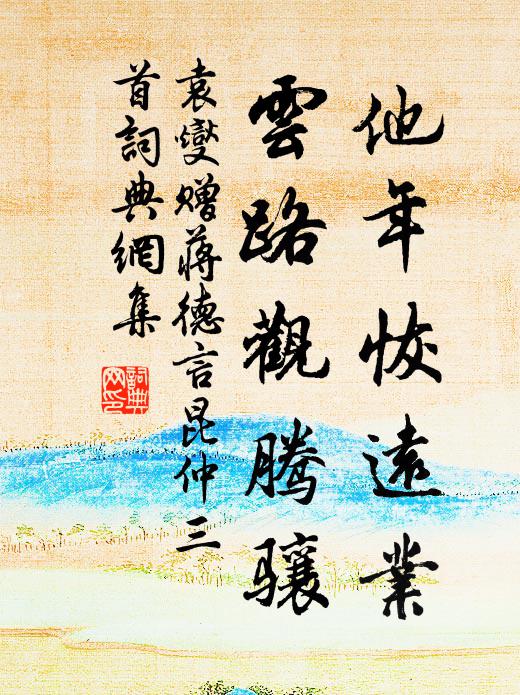 他年恢遠業
雲路觀騰驤
袁燮贈蔣德言昆仲三
首詞典網集
詞典
网印